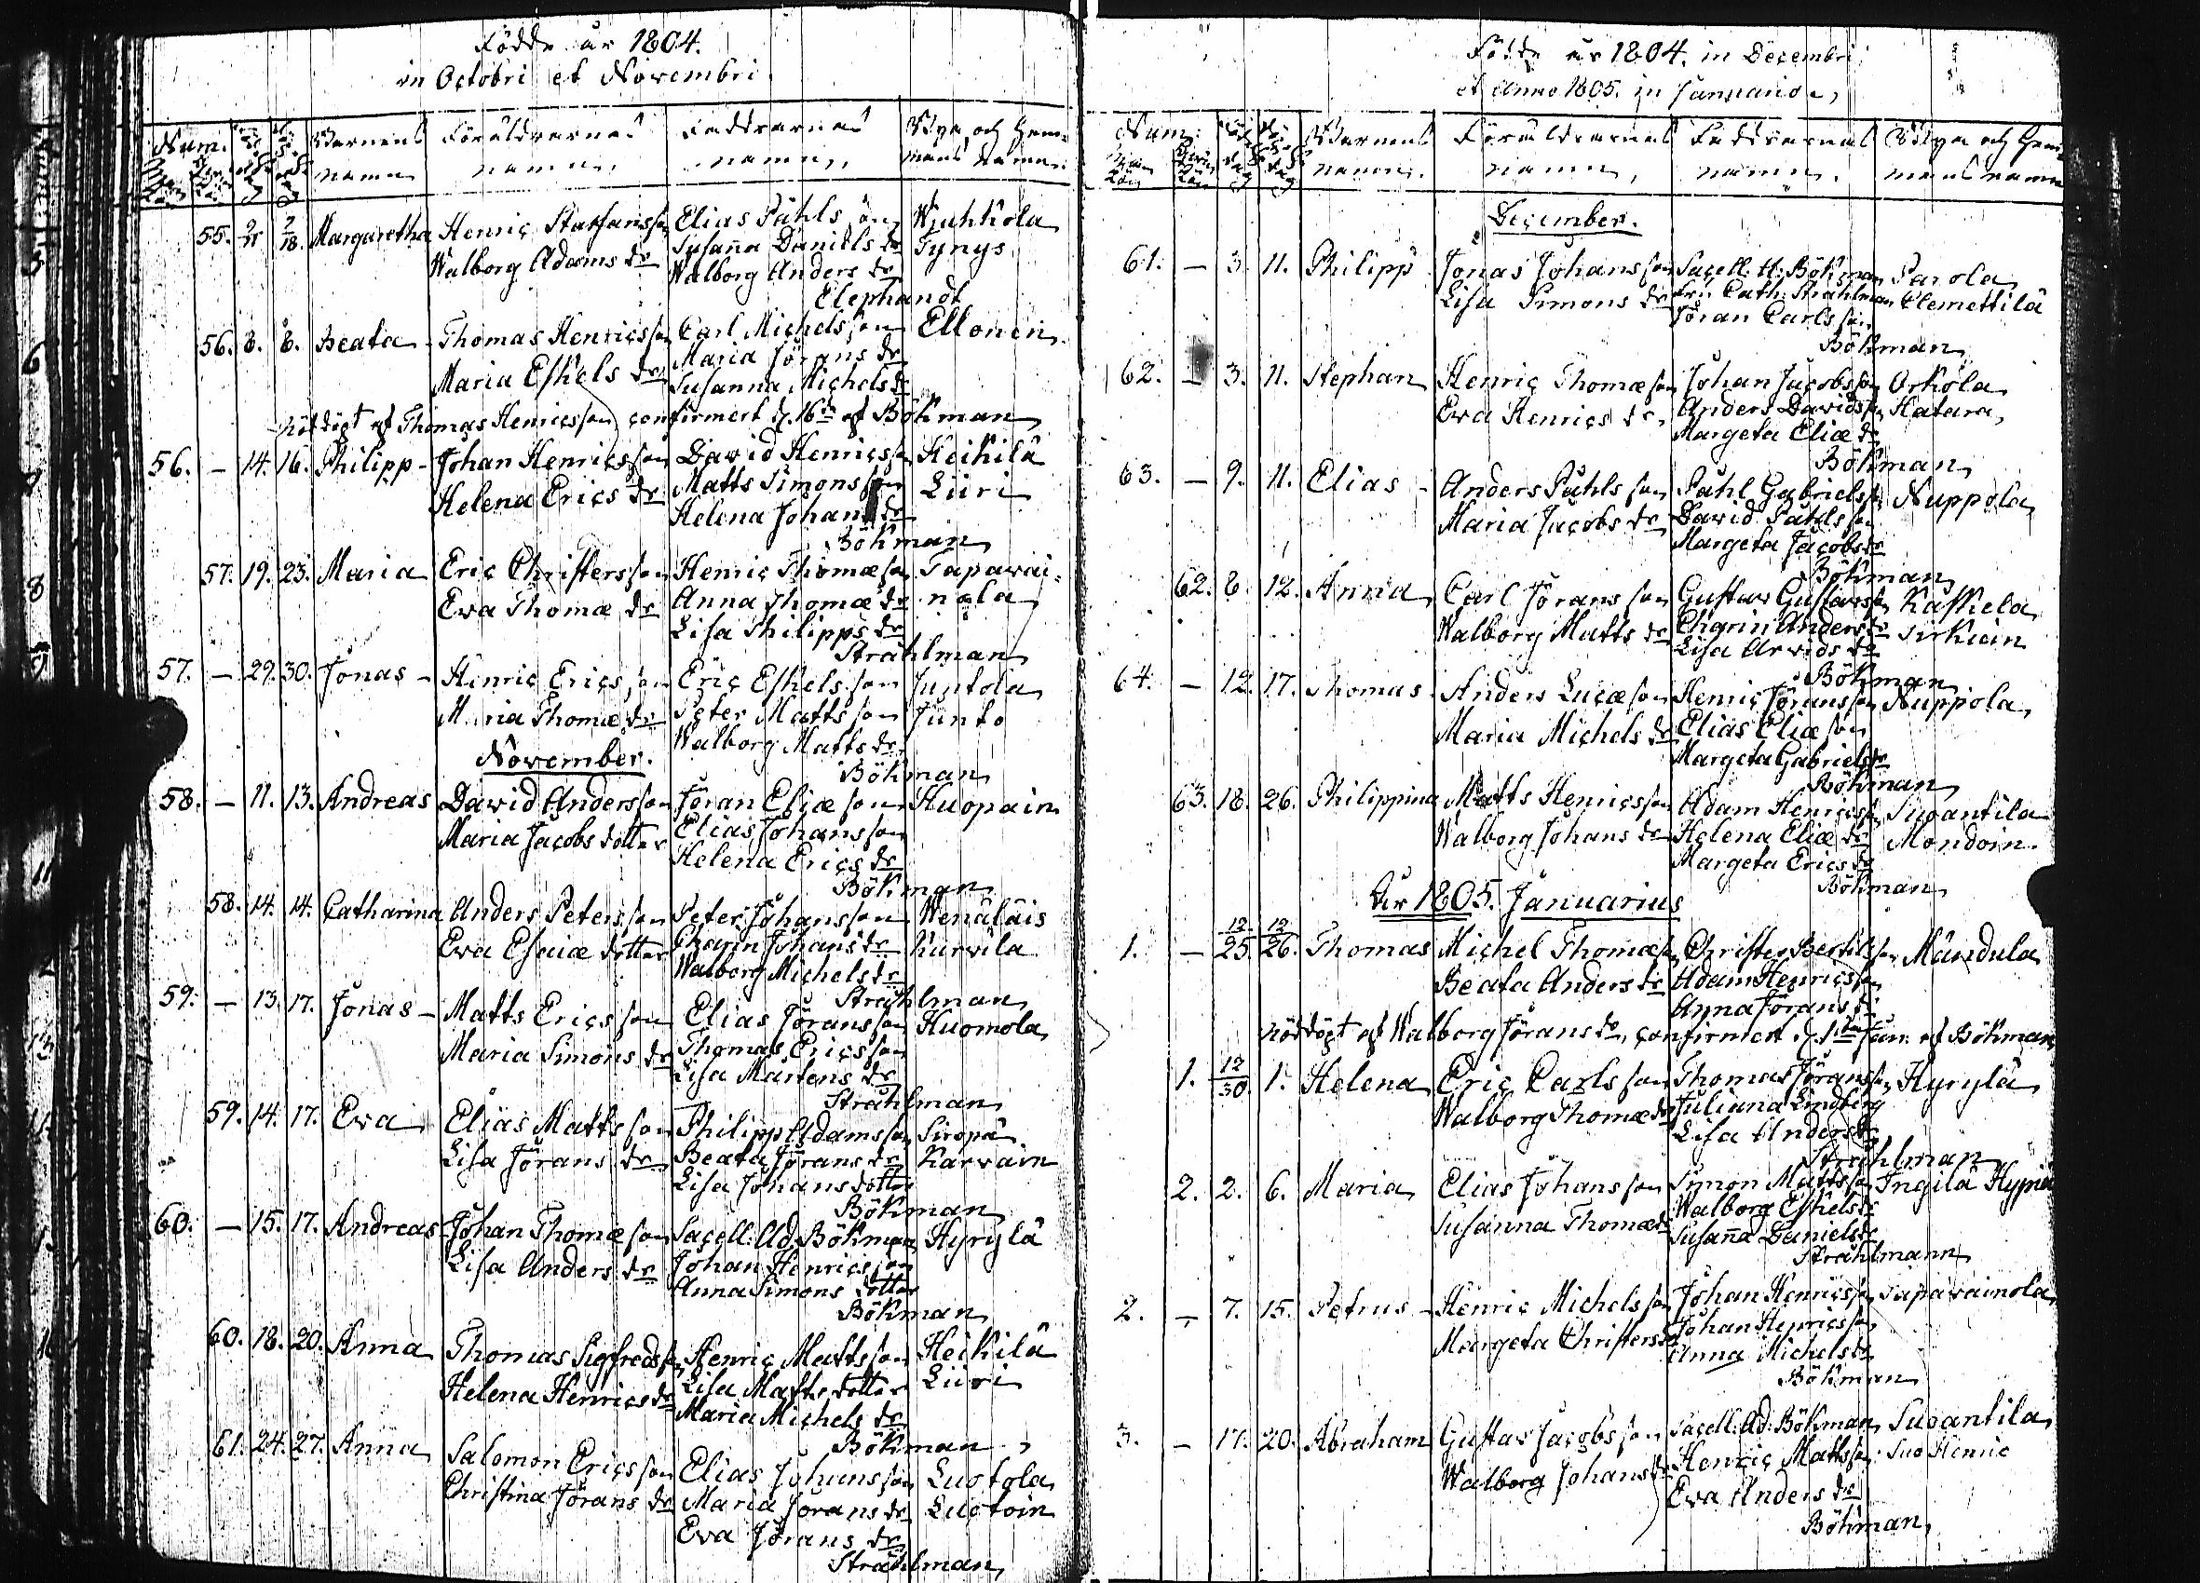 Födde år 1804.
in Octobri et Novembri.
Num. Barnens Föräldrarnas Faddrarnas Bya och Hem-
namn namn, namn, mans namn
55. 7/18. Margaretha Henric Staffansson Elias Påhls son Wjuhkola
Walborg Adams dr Susanna Daniels dr Tynys
Walborg Anders dr
Elephandt
56. 8. 8. Beata Thomas Henricsson Carl Michels son Ellonen
Maria Eskels dr Maria Jörans dr
Susanna Michels dr
nöddögt af Thomas Henricsson, confirmert d. 16de af Bökman
56. – 14. 16. Philipp – Johan Henricsson David Henricsson Heikilä
Helena Erics dr Matts Simonsson Liiri
Helena Johans dr
Bökman
57. 19. 23. Maria Eric Christersson Henric Thomæson Tapavai-
Eva Thomæ dr Anna Thomæ dr nola
Lisa Philipps dr
Strahlman
57. – 29. 30. Jonas – Henric Erics son Eric Eskels son Juntola
Maria Thomæ dr Peter Matts son Junto
Walborg Matts dr
November.
Bökman
58. – 11. 13. Andreas David Andersson Jöran Eliæ son Huopain
Maria Jacobs dotter Elias Johansson
Helena Erics dr
Bökman
58. 14. 14. Catharina Anders Petersson Peter Johansson Wenäläis
Eva Esaiæ dotter Charin Johans dr Kurvila
Walborg Michels dr
Strahlman
59. – 13. 17. Jonas – Matts Erics son Elias Jöransson Huomola
Maria Simons dr Thomas Ericsson
Lisa Martens dr
Strahlman
59. 14. 17. Eva Elias Matts son Philipp Adamsson Siropä
Lisa Jörans dr Beata Jörans dr Karvain
Lisa Johans dotter
Bökman
60. – 15. 17. Andreas Johan Thomæ son Sacell: Ad. Bökman Hyrylä
Lisa Anders dr Johan Henricsson
Anna Simons dotter
Bökman
60. 18. 20. Anna Thomas Sigfredsson Henric Mattsson Heikilä
Helena Henrics dr Lisa Matts dotter Liiri
Maria Michels dr
Bökman
61. 24. 27. Anna Salomon Ericsson Elias Johansson Luotola
Christina Jörans dr Maria Jörans dr Luotoin
Eva Jörans dr
Strahlman
Födde år 1804. in Decembri
et Anno 1805. in Januario,
Num: Barnens Föräldrarnas Faddrarnas Bya och Hem-
namn. namn, namn. mans namn
December.
61. – 3. 11. Philipp Jonas Johansson Sacell. A: Bökman Parola
Lisa Simons dr Fru Cath: Strahlman Clemettilä
Jöran Carls son
Bökman
62. – 3. 11. Stephan Henric Thomæson Johan Jacobsson Orkola
Eva Henrics dr Anders Davidsson Hatara
Margeta Eliæ dr
Bökman
63. – 9. 11. Elias – Anders Påhls son Påhl Gabrielsson Nuppola
Maria Jacobs dr David Påhls son
Margeta Jacobs dr
Bökman
62. 6. 12. Anna Carl Jörans son Gustav Gustavsson Kaskela
Walborg Matts dr Charin Anders dr Sirkiäin
Lisa Arvids dr
Bökman
64. – 12. 17. Thomas Anders Lucæson Henric Jöransson Nuppola
Maria Michels dr Elias Eliæ son
Margeta Gabriels dr
Bökman
63. 18. 26. Philippina Matts Henricsson Adam Henricsson Suoantila
Walborg Johans dr Helena Eliæ dr Mondoin
Margeta Erics dr
Bökman
År 1805. Januarius
1. – 12/25 12/26. Thomas Michel Thomæson Christer Bertilsson Mändula
Beata Anders dr Adam Henricsson
Anna Jörans dr
nöddögt af Walborg Jörans dr, confirmert d. 1sta Jan. af Bökman
1. 12/30. 1. Helena Eric Carls son Thomas Jöransson Hyrylä
Walborg Thomæ dr Juliana Lindberg
Lisa Anders dr
Strahlman
2. 2. 6. Maria Elias Johansson Simon Mattsson Ingilä
Susanna Thomædr Walborg Eskels dr
Susanna Daniels dr
Strahlmann
2. – 7. 15. Petrus – Henric Michelsson Johan Henricsson Tapavainola
Margeta Christers dr Johan Henricsson
Anna Michels dr
Bökman
3. – 17. 20. Abraham Gustav Jacobsson Sacell: Ad. Bökman Suoantila
Walborg Johans dr Henric Mattsson Suo Henric
Eva Anders dr
Bökman